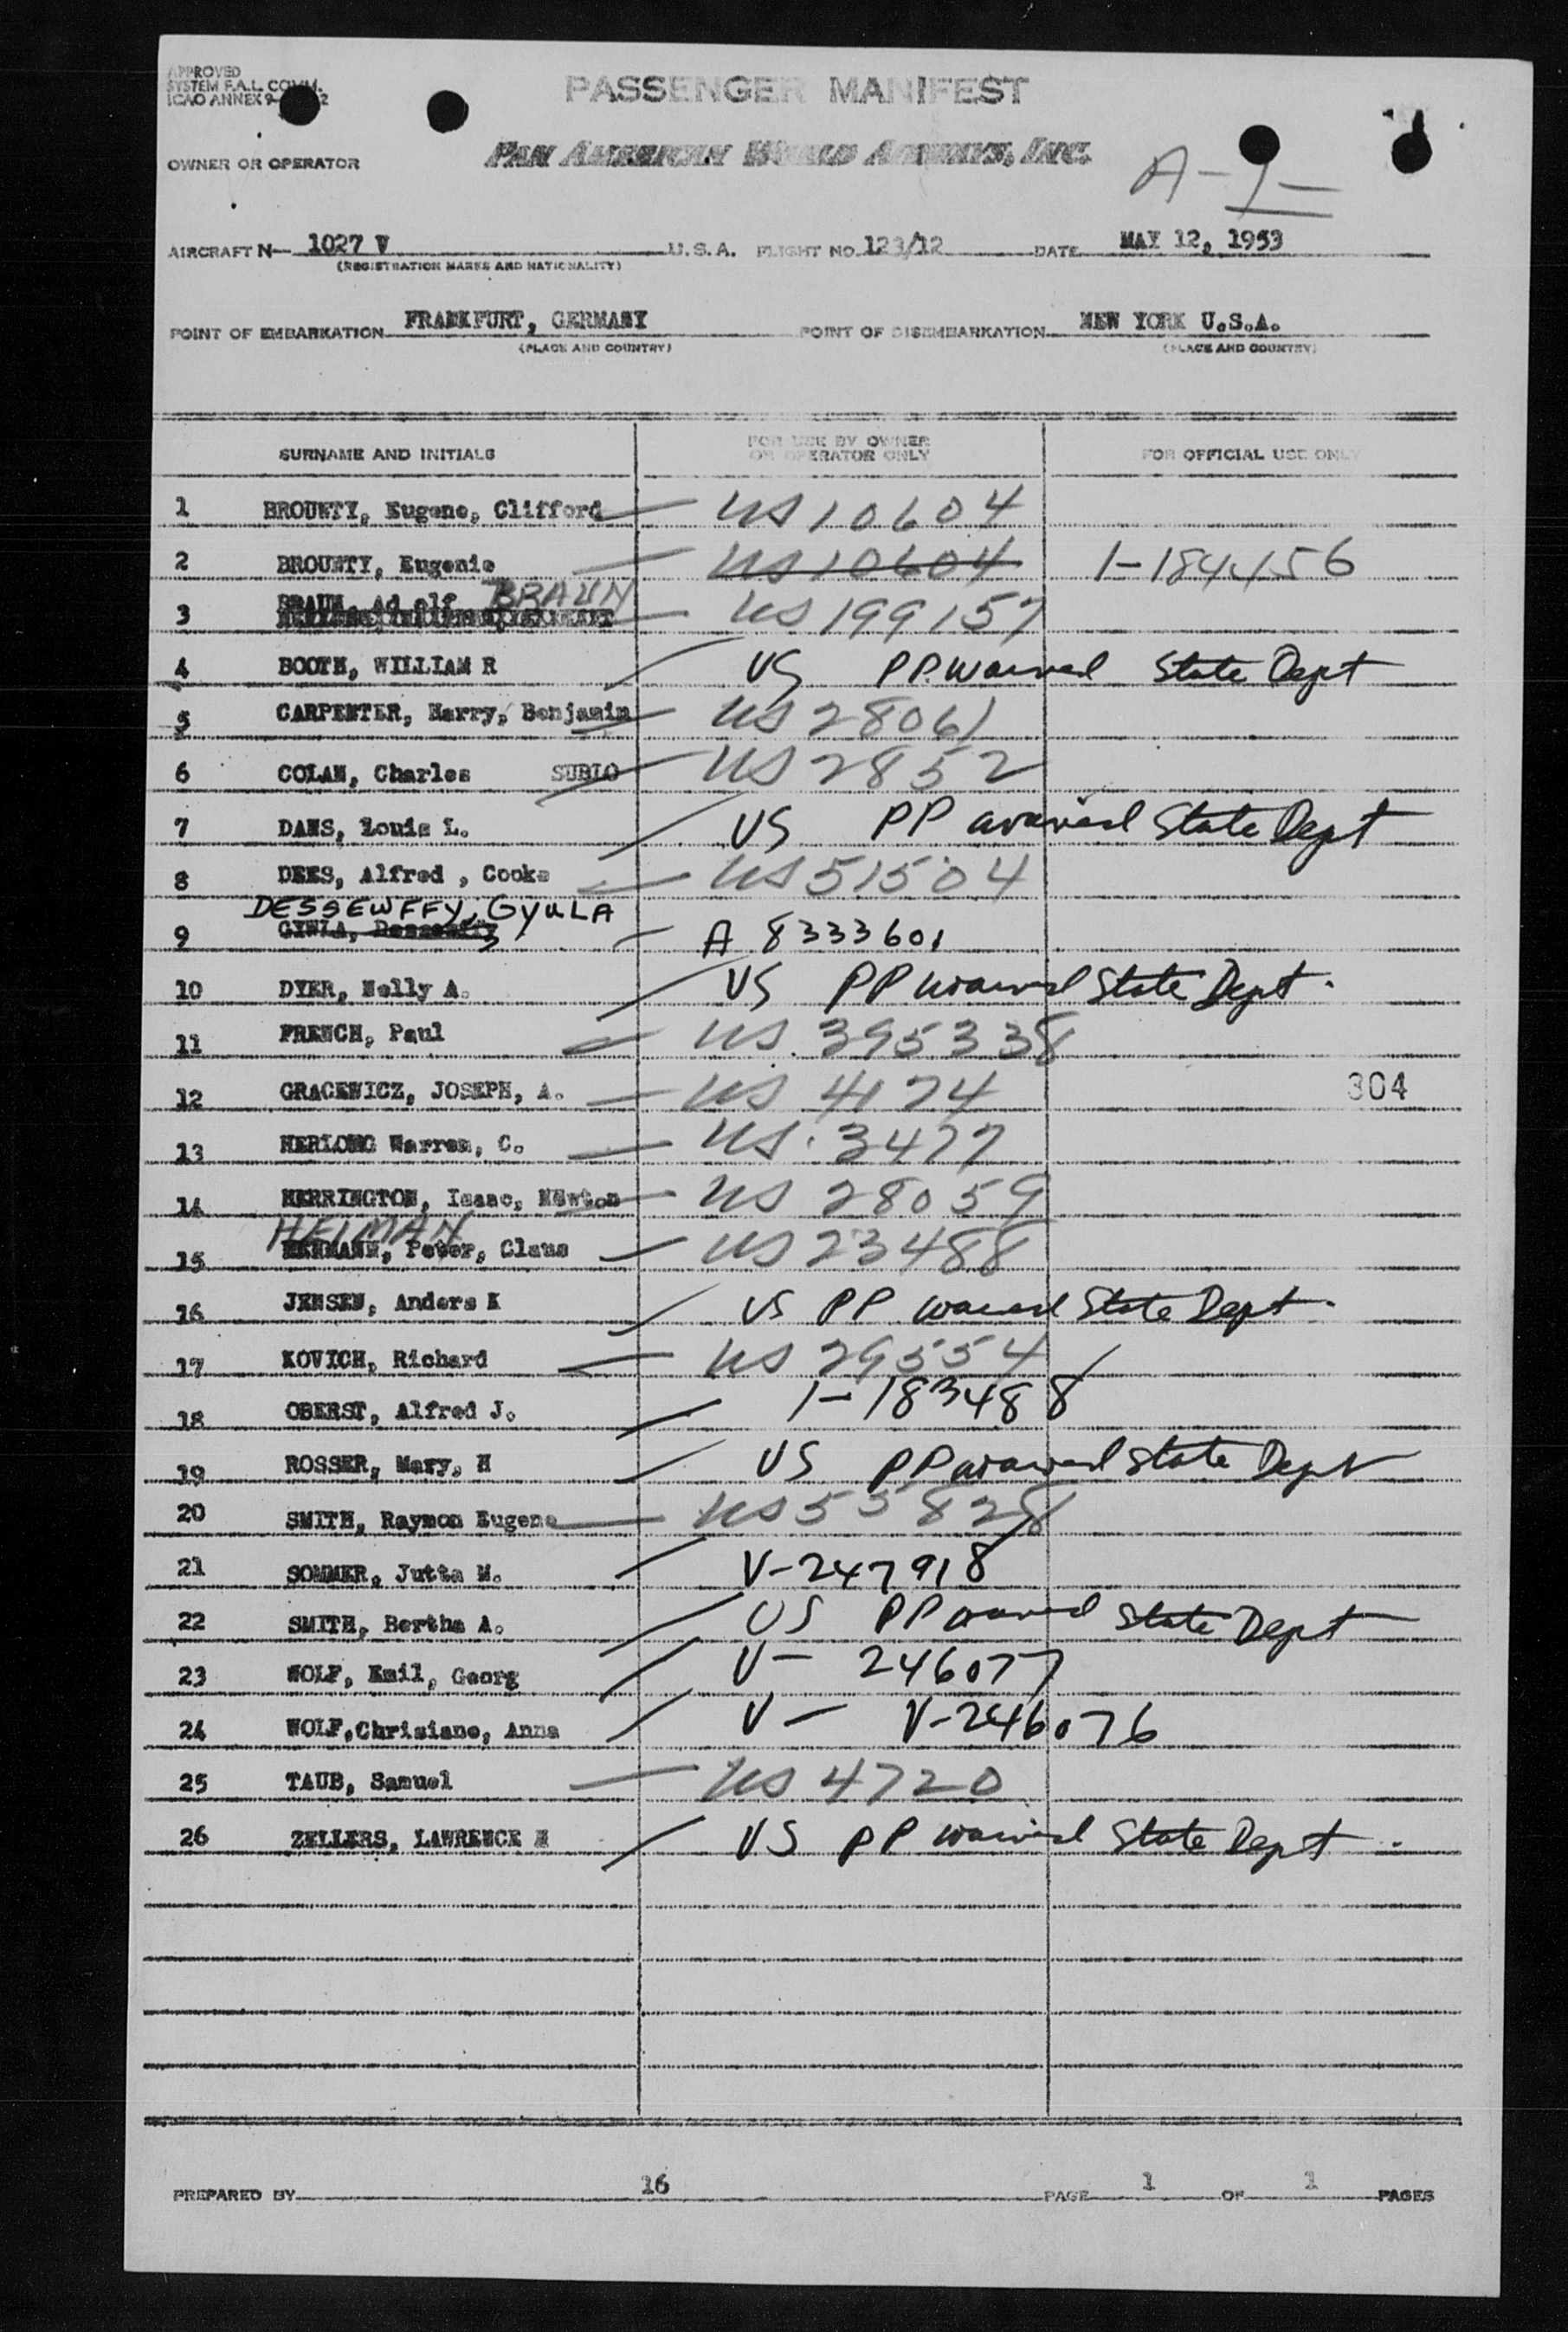 APPROVED
SYSTEM F.A.L. COMM.
ICAO ANNEX 9-
PASSENGER MANIFEST
OWNER OR OPERATOR PAN AMERICAN WORLD AIRWAYS, INC.
A-
AIRCRAFT N— 1027 V U.S.A. FLIGHT NO. 123/12 DATE MAY 12, 1953
(REGISTRATION MARKS AND NATIONALITY)
POINT OF EMBARKATION FRANKFURT, GERMANY POINT OF DISEMBARKATION NEW YORK U.S.A.
(PLACE AND COUNTRY) (PLACE AND COUNTRY)
SURNAME AND INITIALS FOR USE BY OWNER OR OPERATOR ONLY FOR OFFICIAL USE ONLY
1 BROUNTY, Eugene, Clifford US 10604
2 BROUNTY, Eugenie US 10604 1-184456
3 BRAUN, Ad olf BRAUN US 199157
4 BOOTH, WILLIAM R US PP. waived State Dept
5 CARPENTER, Harry, Benjamin US 28061
6 COLAN, Charles SUBLO US 2852
7 DANS, Louis L. US PP waived State Dept
8 DEES, Alfred , Cooke US 51504
DESSEWFFY, GYULA
9 GYWLA, A 8333601
10 DYER, Nelly A. US PP waived State Dept.
11 FRENCH, Paul US 395338
12 GRACEWICZ, JOSEPH, A. US 4174 304
13 HERLONG Warren, C. US 3477
14 HERRINGTON, Isaac, Newton US 28059
HEIMAN
15 HERMANN, Peter, Claus US 23488
16 JENSEN, Anders K US PP waived State Dept.
17 KOVICH, Richard US 29554
18 OBERST, Alfred J. 1-183488
19 ROSSER, Mary, H US PP waived State Dept
20 SMITH, Raymon Eugene US 55828
21 SOMMER, Jutta M. V-247918
22 SMITH, Bertha A. US PP waived State Dept
23 WOLF, Emil, Georg V- 246077
24 WOLF, Chrisiane, Anna V- V-246076
25 TAUB, Samuel US 4720
26 ZELLERS, LAWRENCE H US PP waived State Dept.
PREPARED BY 16 PAGE 1 OF 1 PAGES